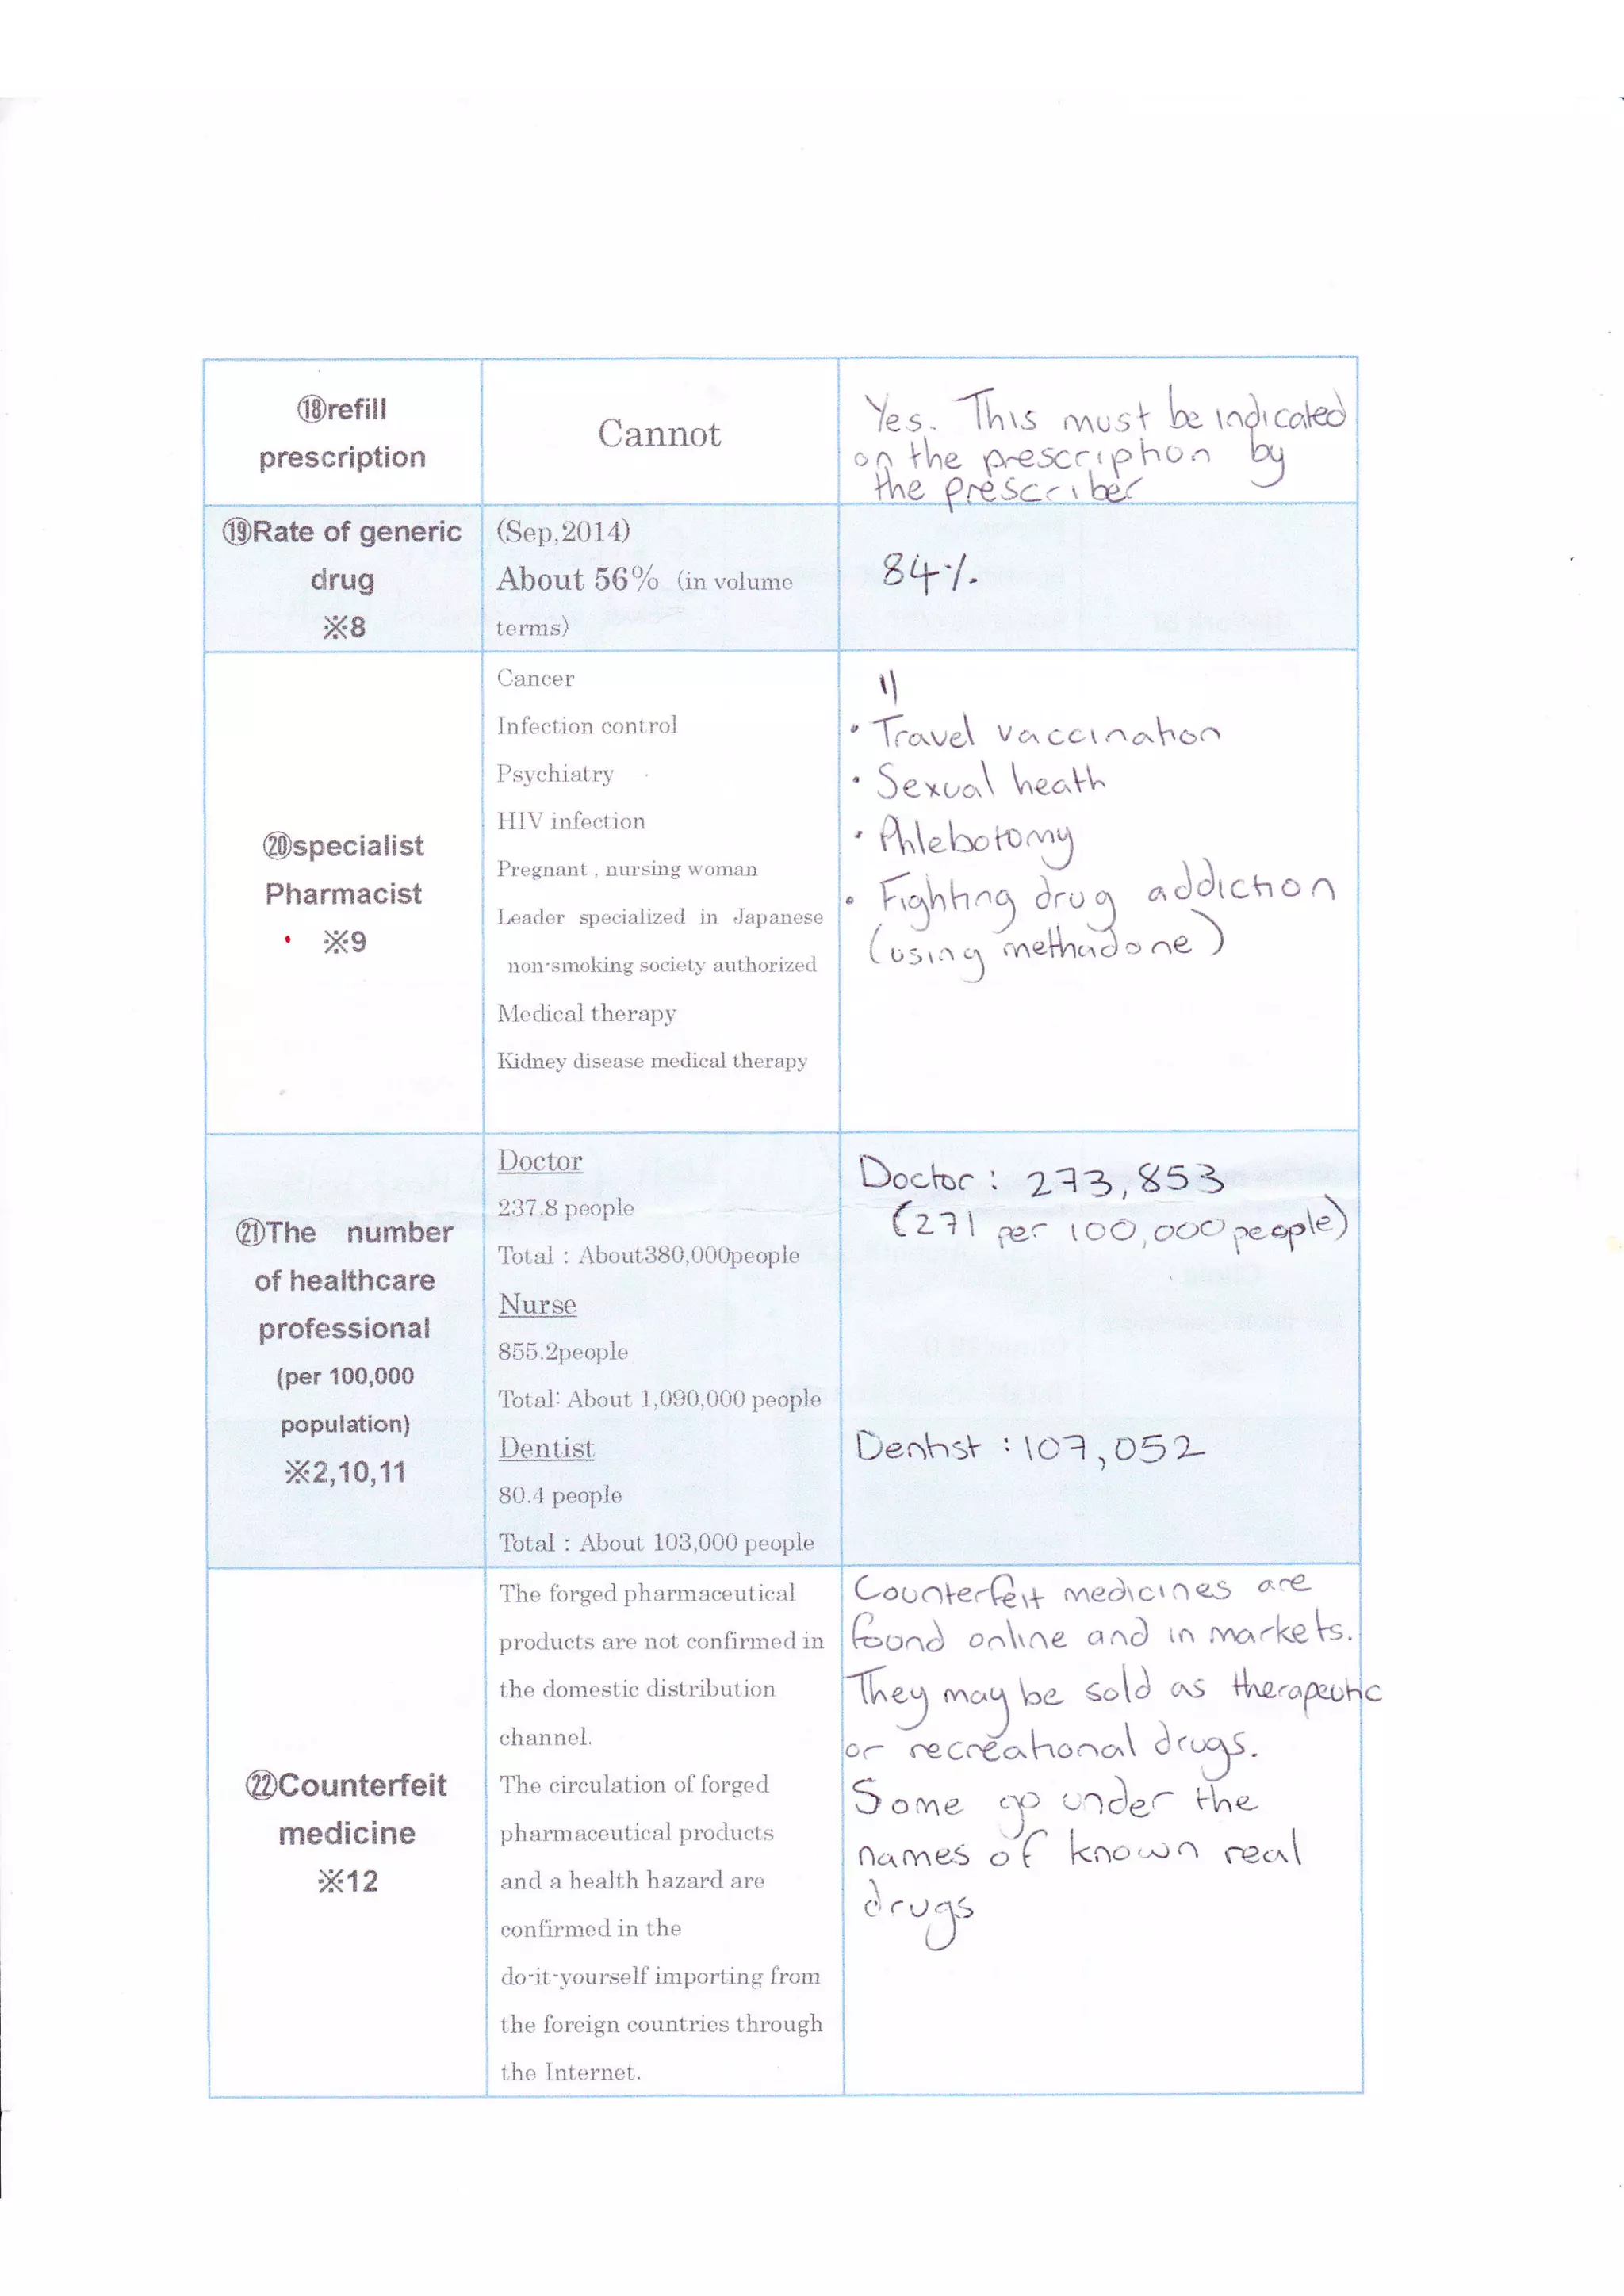 ⑱refill
prescription
Cannot
Yes. This must be indicated
on the prescription by
the prescriber
⑲Rate of generic
drug
※8
(Sep,2014)
About 56% (in volume
terms)
84%
⑳specialist
Pharmacist
※9
Cancer
Infection control
Psychiatry
HIV infection
Pregnant , nursing woman
Leader specialized in Japanese
non-smoking society authorized
Medical therapy
Kidney disease medical therapy
• Travel vaccination
• Sexual heath
• Phlebotomy
• Fighting drug addiction
(using methadone)
㉑The number
of healthcare
professional
(per 100,000
population)
※2,10,11
Doctor
237.8 people
Total : About380,000people
Nurse
855.2people
Total: About 1,090,000 people
Dentist
80.4 people
Total : About 103,000 people
Doctor : 273,853
(271 per 100,000 people)
Dentist : 107,052
㉒Counterfeit
medicine
※12
The forged pharmaceutical
products are not confirmed in
the domestic distribution
channel.
The circulation of forged
pharmaceutical products
and a health hazard are
confirmed in the
do-it-yourself importing from
the foreign countries through
the Internet.
Counterfeit medicines are
found online and in markets.
They may be sold as therapeutic
or recreational drugs.
Some go under the
names of known real
drugs